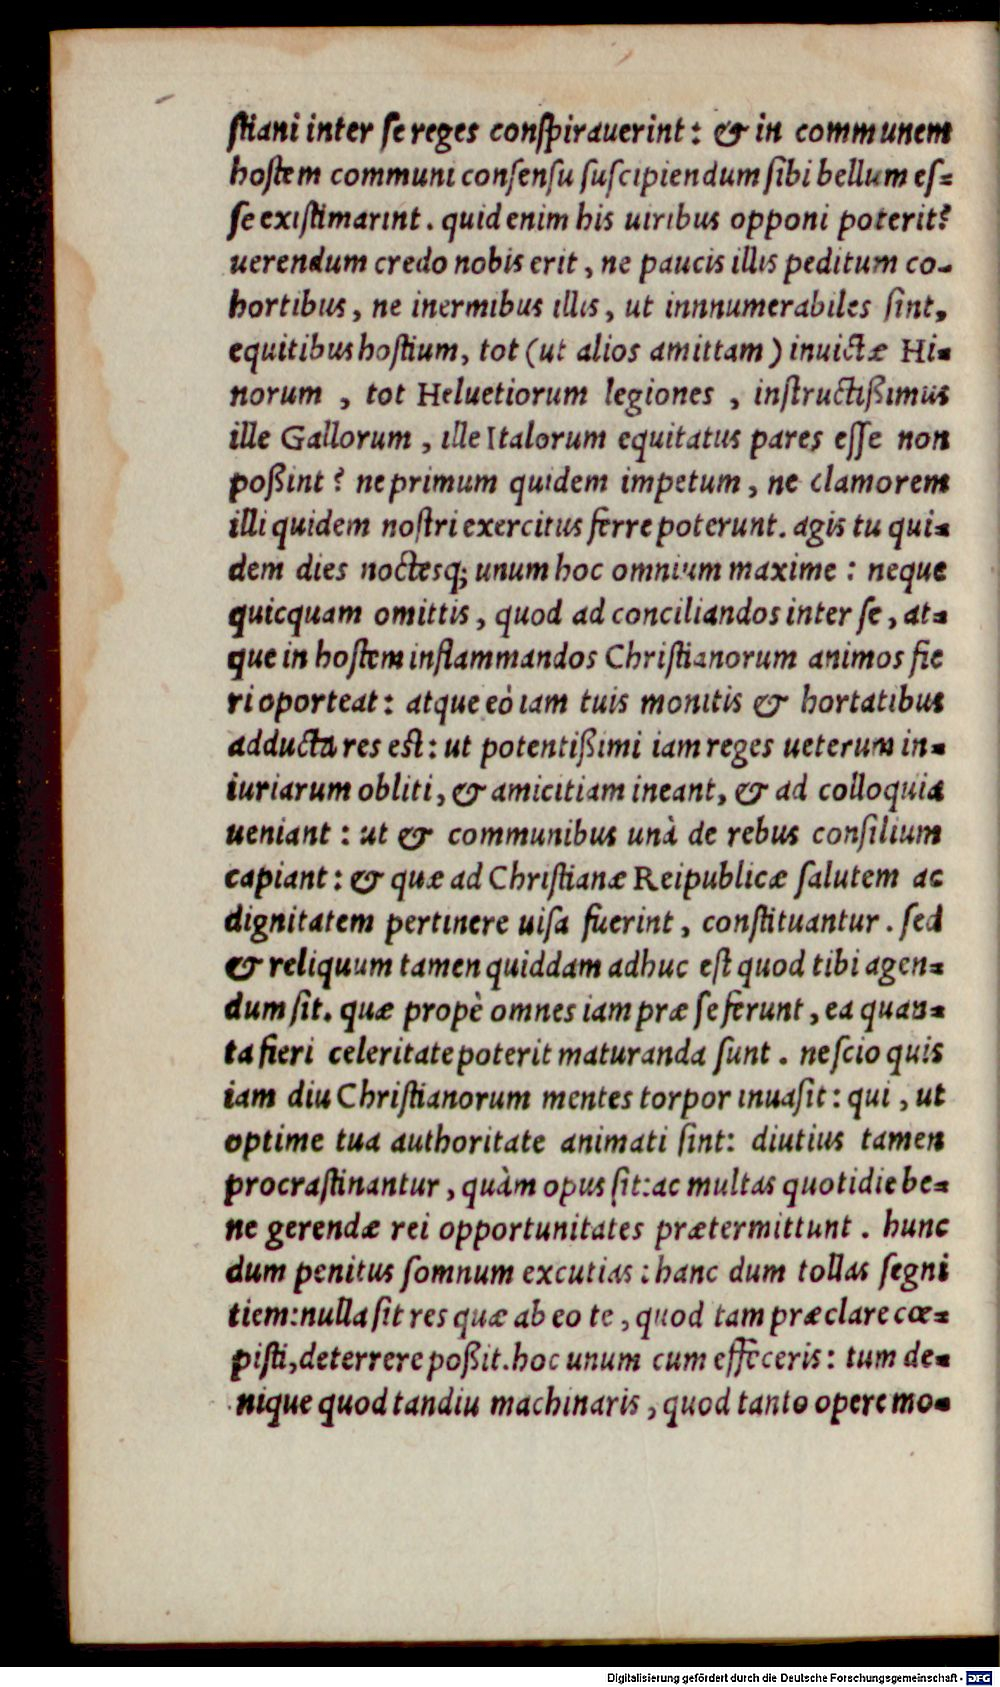 ſtiani inter ſe reges conſpirauerint: & in communem
hoſtem communi conſenſu ſuſcipiendum ſibi bellum eſ=
ſe exiſtimarint. quid enim his uiribus opponi poterit?
uerendum credo nobis erit, ne paucis illis peditum co-
hortibus, ne inermibus illis, ut innnumerabiles ſint,
equitibus hoſtium, tot (ut alios amittam) inuictæ Hi=
norum , tot Heluetiorum legiones , inſtructißimus
ille Gallorum , ille Italorum equitatus pares eſſe non
poßint? ne primum quidem impetum, ne clamorem
illi quidem noſtri exercitus ferre poterunt. agis tu qui=
dem dies noctesq; unum hoc omnium maxime: neque
quicquam omittis, quod ad conciliandos inter ſe, at=
que in hoſtem inflammandos Chriſtianorum animos fie
ri oporteat: atque eò iam tuis monitis & hortatibus
adducta res eſt: ut potentißimi iam reges ueterum in=
iuriarum obliti, & amicitiam ineant, & ad colloquia
ueniant: ut & communibus unà de rebus conſilium
capiant: & quæ ad Chriſtianæ Reipublicæ ſalutem ac
dignitatem pertinere uiſa fuerint, conſtituantur. ſed
& reliquum tamen quiddam adhuc eſt quod tibi agen=
dum ſit. quæ propè omnes iam præ ſe ferunt, ea quan=
ta fieri celeritate poterit maturanda ſunt. neſcio quis
iam diu Chriſtianorum mentes torpor inuaſit: qui, ut
optime tua authoritate animati ſint: diutius tamen
procraſtinantur, quàm opus ſit: ac multas quotidie be=
ne gerendæ rei opportunitates prætermittunt. hunc
dum penitus ſomnum excutias: hanc dum tollas ſegni
tiem: nulla ſit res quæ ab eo te, quod tam præclare cœ=
piſti, deterrere poßit. hoc unum cum effeceris: tum de=
nique quod tandiu machinaris, quod tanto opere mo=
Digitalisierung gefördert durch die Deutsche Forschungsgemeinschaft - DFG